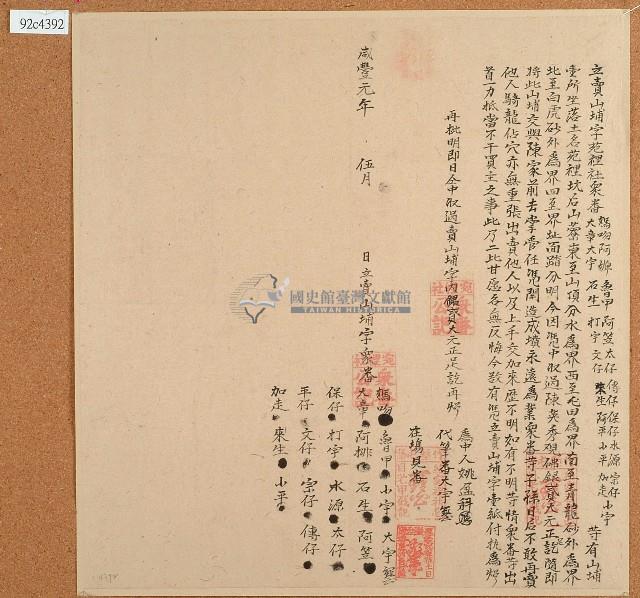 立賣山埔字苑裡社眾番 媽吻 阿㯭 魯甲 阿笠 太仔 傳仔 保仔 水源 宗仔 小宇
大章 大宇 石生 打宇 文仔 來生 阿平 小平 加走 等有山埔
壹所坐落土名苑裡坑后山藔東至山頂分水為界西至坵田為界南至青龍砂外為界
北至白虎砂外為界四至界址面踏分明今因憑中取過陳 秀現 銀貳大元正訖隨即
將此山埔交與陳家前去掌管任憑開造成墳永遠為業眾番等子孫日后不敢再賣
他人騎龍佔穴亦無重張出賣他人以及上手交加來歷不明如有不明等情眾番等出
首一力抵當不干買主之事此乃二比甘愿各無反悔今欲有憑立賣山埔字壹紙付執為炤
再批明即日仝中取過賣山埔字內銀貳大元正足訖再炤
為中人姚
代筆番大宇
在場見番
咸豐元年 伍月 日立賣山埔字眾番
媽吻 魯甲 小宇 大宇
大章 阿排 石生 阿笠
保仔 打宇 水源 太仔
平仔 文仔 宗仔 傳仔
加走 來生 小平
92c4392
國史館臺灣文獻館
TAIWAN HISTORICA